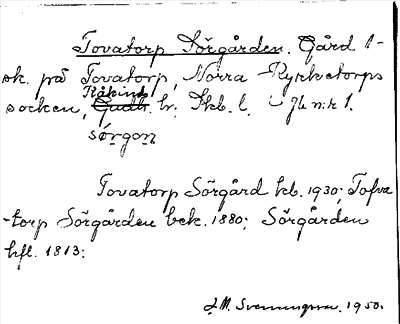 Tovatorp Sörgården. Gård 1-
sk. på Tovatorp, Norra Kyrketorps
socken, Kåkinds hr; Skb. l. i Jb nr 1.
sörgoɲ
Tovatorp Sörgård kb. 1930; Tofva
-torp Sörgården bek. 1880; Sörgården
hfl. 1813;
J.M. Svenningsson. 1950.